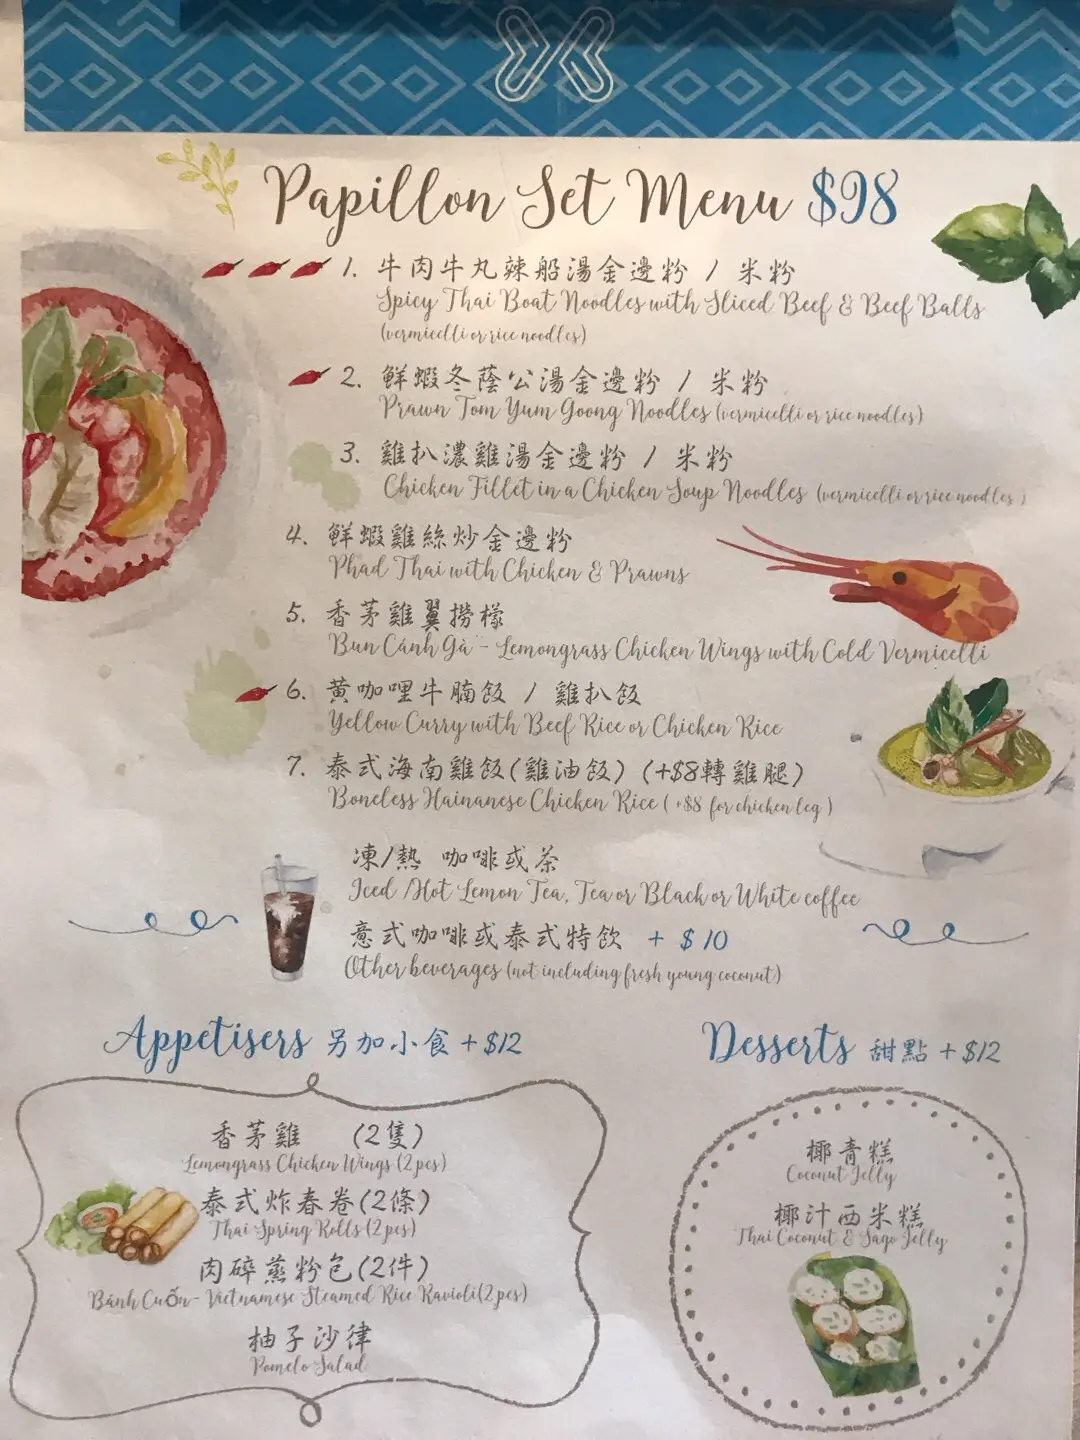 Papillon Set Menu $98
1. 牛肉牛丸辣船湯金邊粉 / 米粉
Spicy Thai Boat Noodles with Sliced Beef & Beef Balls
(vermicelli or rice noodles)
2. 鮮蝦冬蔭公湯金邊粉 / 米粉
Prawn Tom Yum Goong Noodles (vermicelli or rice noodles)
3. 雞扒濃雞湯金邊粉 / 米粉
Chicken Fillet in a Chicken Soup Noodles (vermicelli or rice noodles)
4. 鮮蝦雞絲炒金邊粉
Phad Thai with Chicken & Prawns
5. 香茅雞翼撈檬
Bun Cánh Gà - Lemongrass Chicken Wings with Cold Vermicelli
6. 黄咖哩牛腩飯 / 雞扒飯
Yellow Curry with Beef Rice or Chicken Rice
7. 泰式海南雞飯(雞油飯) (+$8轉雞腿)
Boneless Hainanese Chicken Rice ( +$8 for chicken leg )
凍/熱 咖啡或茶
Iced /Hot Lemon Tea, Tea or Black or White coffee
意式咖啡或泰式特飲 + $10
Other beverages (not including fresh young coconut)
Appetisers 另加小食 +$12
香茅雞 (2隻)
Lemongrass Chicken Wings (2pcs)
泰式炸春卷(2條)
Thai Spring Rolls (2pcs)
肉碎蒸粉包(2件)
Bánh Cuốn- Vietnamese Steamed Rice Ravioli(2pcs)
柚子沙律
Pomelo Salad
Desserts 甜點 +$12
椰青糕
Coconut Jelly
椰汁西米糕
Thai Coconut & Sago Jelly